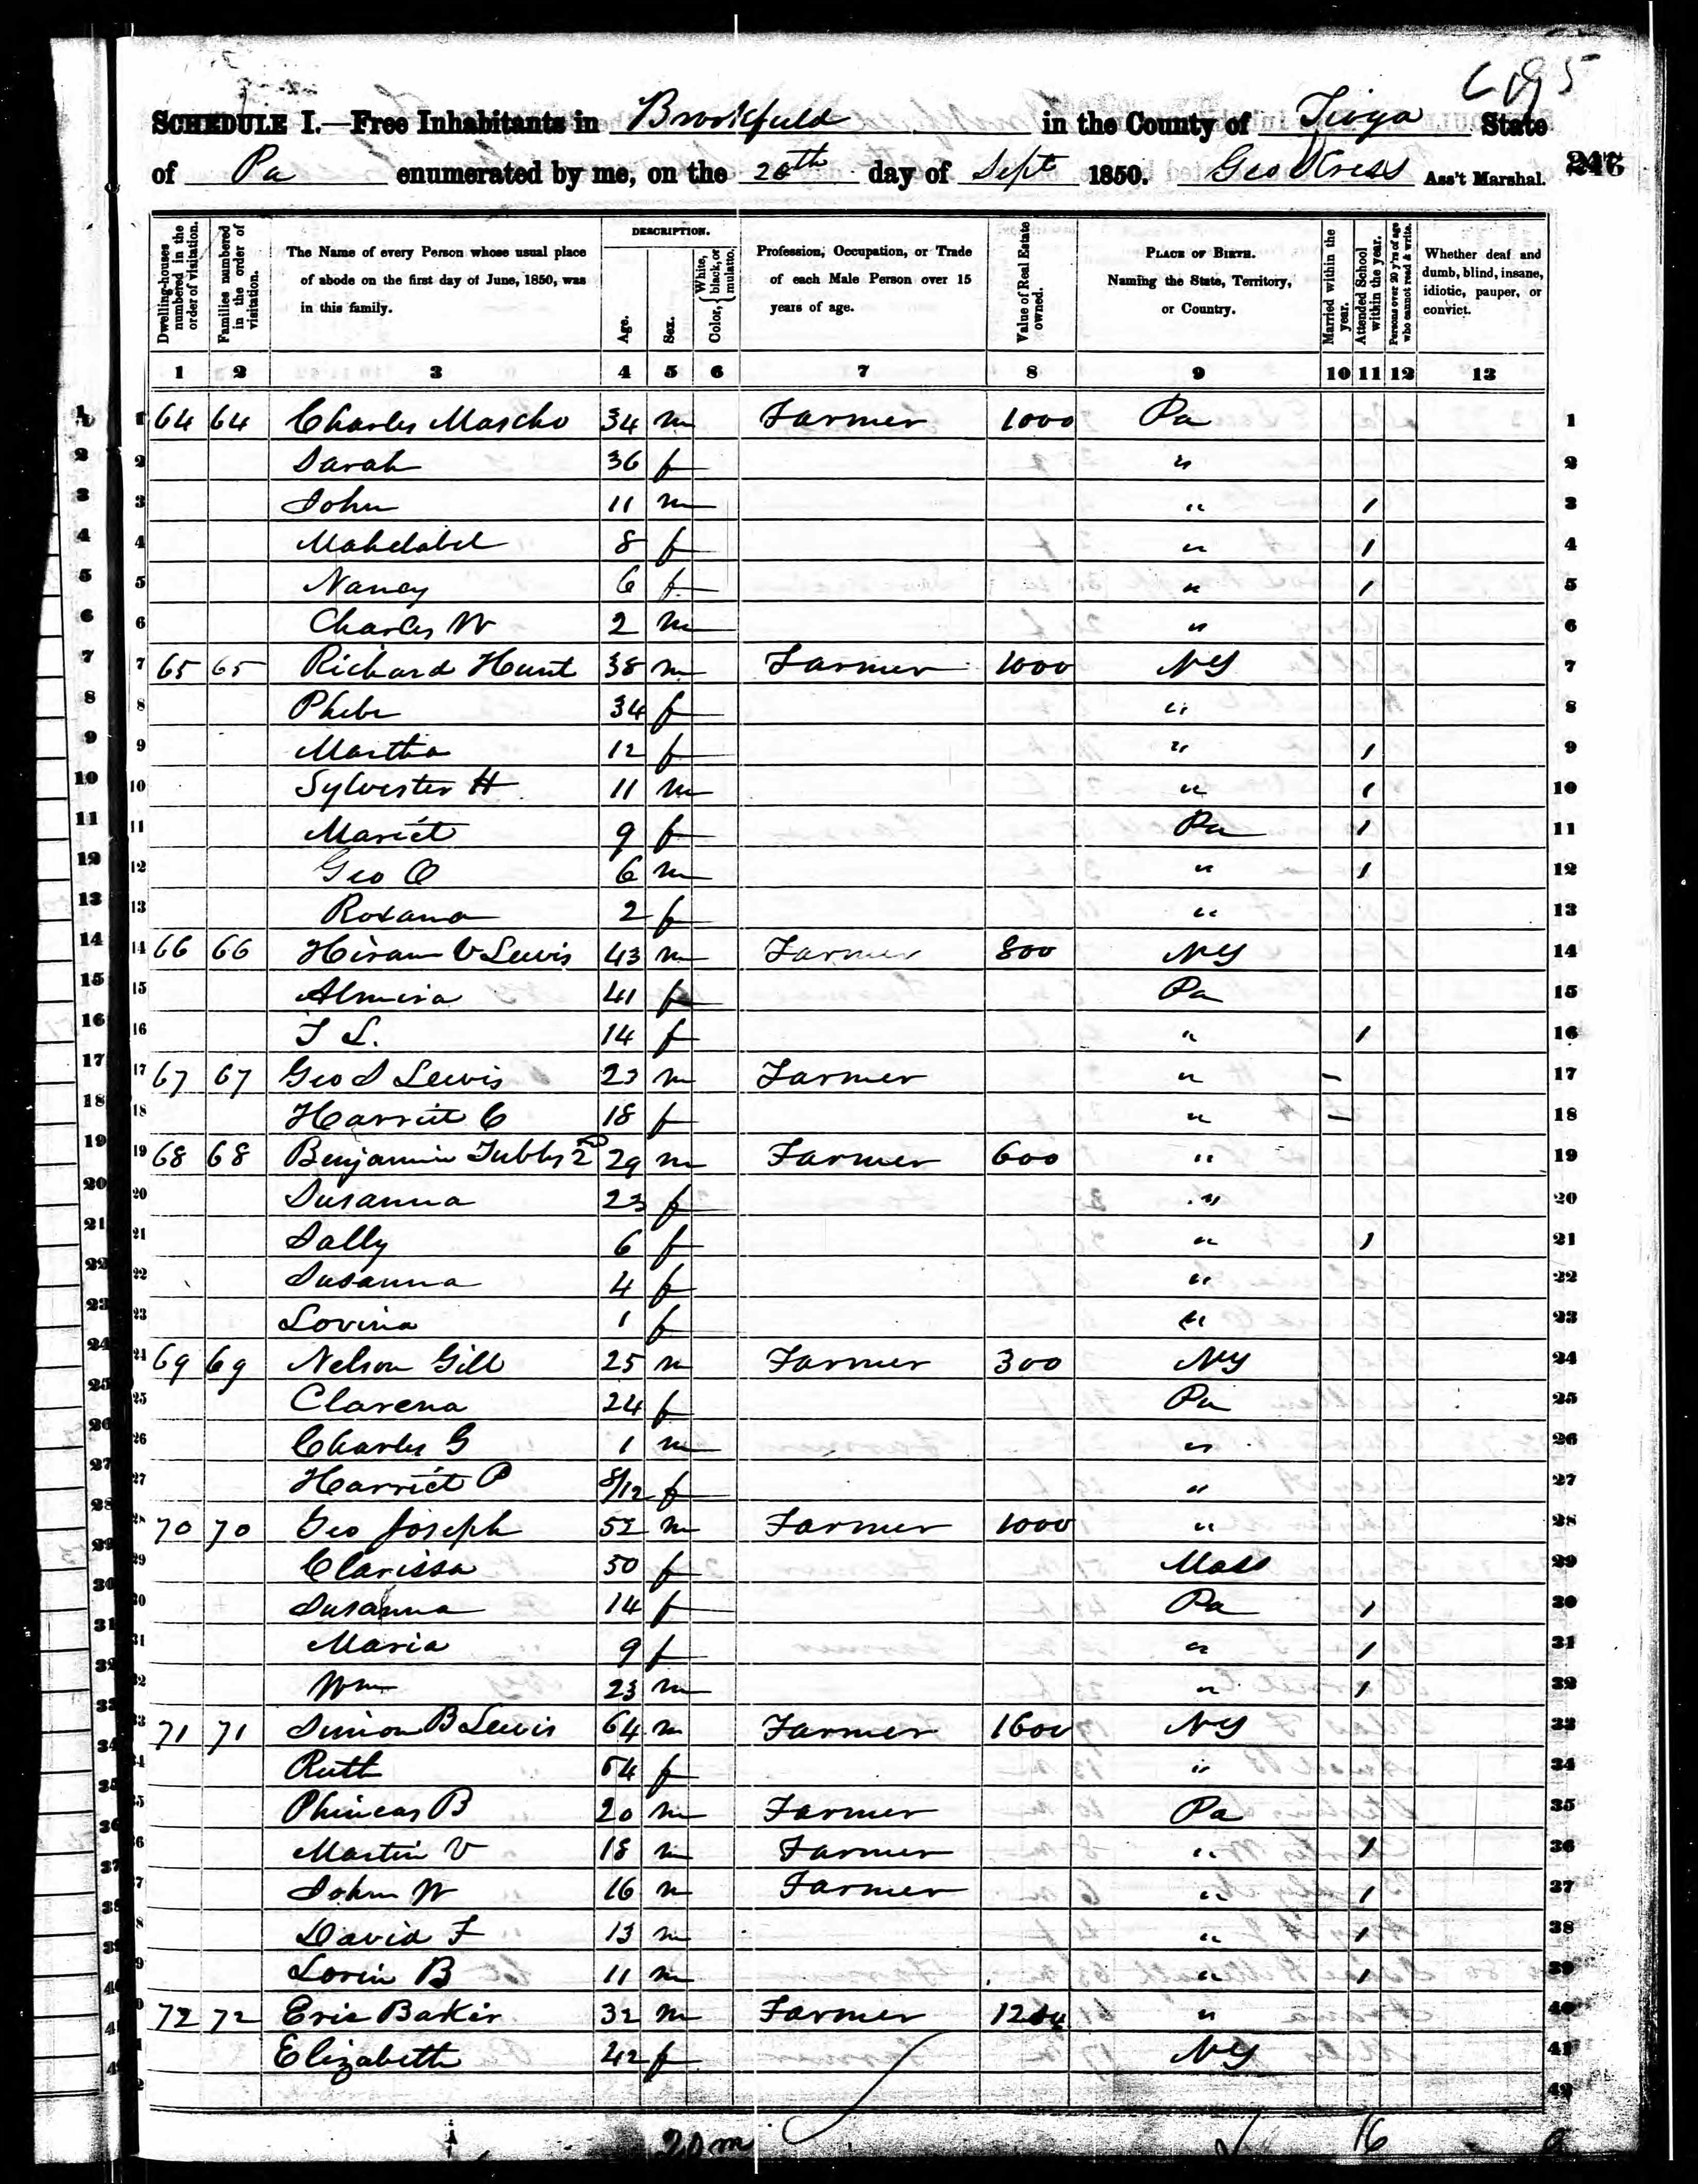 SCHEDULE I.—Free Inhabitants in Brookfield in the County of Tioga State
of Pa enumerated by me, on the 20th day of Sept 1850. Geo Kress Ass't Marshal. 246
Dwelling-houses numbered in the order of visitation.
Families numbered in the order of visitation.
The Name of every Person whose usual place of abode on the first day of June, 1850, was in this family.
DESCRIPTION.
Age.
Sex.
Color, { White, black, or mulatto.
Profession, Occupation, or Trade of each Male Person over 15 years of age.
Value of Real Estate owned.
PLACE OF BIRTH. Naming the State, Territory, or Country.
Married within the year.
Attended School within the year.
Persons over 20 y'rs of age who cannot read & write.
Whether deaf and dumb, blind, insane, idiotic, pauper, or convict.
1 2 3 4 5 6 7 8 9 10 11 12 13
1 64 64 Charles Mascho 34 m Farmer 1000 Pa 1
2 Sarah 36 f " 2
3 John 11 m " / 3
4 Mahelabel 8 f " / 4
5 Nancy 6 f " / 5
6 Charles W 2 m " 6
7 65 65 Richard Hunt 38 m Farmer 1000 NY 7
8 Phebe 34 f " 8
9 Martha 12 f " / 9
10 Sylvester H 11 m " / 10
11 Mariet 9 f Pa / 11
12 Geo O 6 m " / 12
13 Roxana 2 f " 13
14 66 66 Hiram V Lewis 43 m Farmer 800 NY 14
15 Almira 41 f Pa 15
16 T L. 14 f " / 16
17 67 67 Geo S Lewis 23 m Farmer " – 17
18 Harriet C 18 f " – 18
19 68 68 Benjamin Tubbs 2d 29 m Farmer 600 " 19
20 Susanna 23 f " 20
21 Sally 6 f " / 21
22 Susanna 4 f " 22
23 Lovina 1 f " 23
24 69 69 Nelson Gill 25 m Farmer 300 NY 24
25 Clarena 24 f Pa 25
26 Charles G 1 m " 26
27 Harriet P 8/12 f " 27
28 70 70 Geo Joseph 52 m Farmer 1000 " 28
29 Clarissa 50 f Mass 29
30 Susanna 14 f Pa / 30
31 Maria 9 f " / 31
32 Wm 23 m " / 32
33 71 71 Simon B Lewis 64 m Farmer 1600 NY 33
34 Ruth 54 f " 34
35 Phineas B 20 m Farmer Pa 35
36 Martin V 18 m Farmer " / 36
37 John W 16 m Farmer " / 37
38 David F 13 m " / 38
39 Lorin B 11 m " / 39
40 72 72 Eric Baker 32 m Farmer " 40
41 Elizabeth 42 f NY 41
42
20 m 16